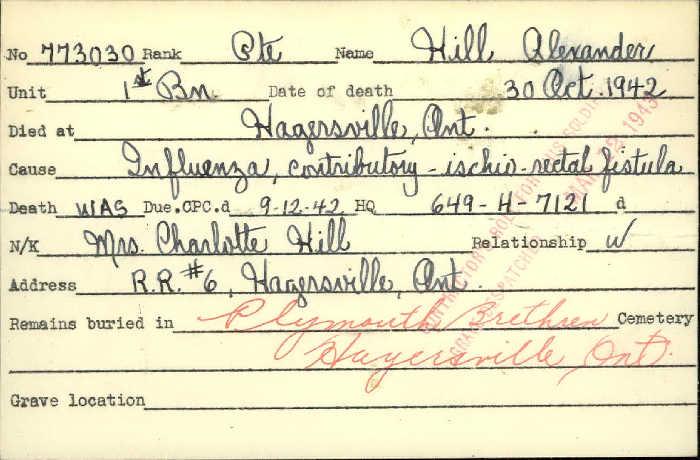 No 773030 Rank Pte Name Hill Alexander
Unit 1st Bn. Date of death 30 Oct. 1942
Died at Hagersville, Ont.
Cause Influenza, contributory - ischio-rectal fistula
Death WAS Due.CPC.d 9-12-42 HQ 649-H-7121 d
N/K Mrs. Charlotte Hill Relationship W
Address R.R. #6, Hagersville, Ont.
Remains buried in Plymouth Brethren Cemetery
Hagersville Ont.
Grave location